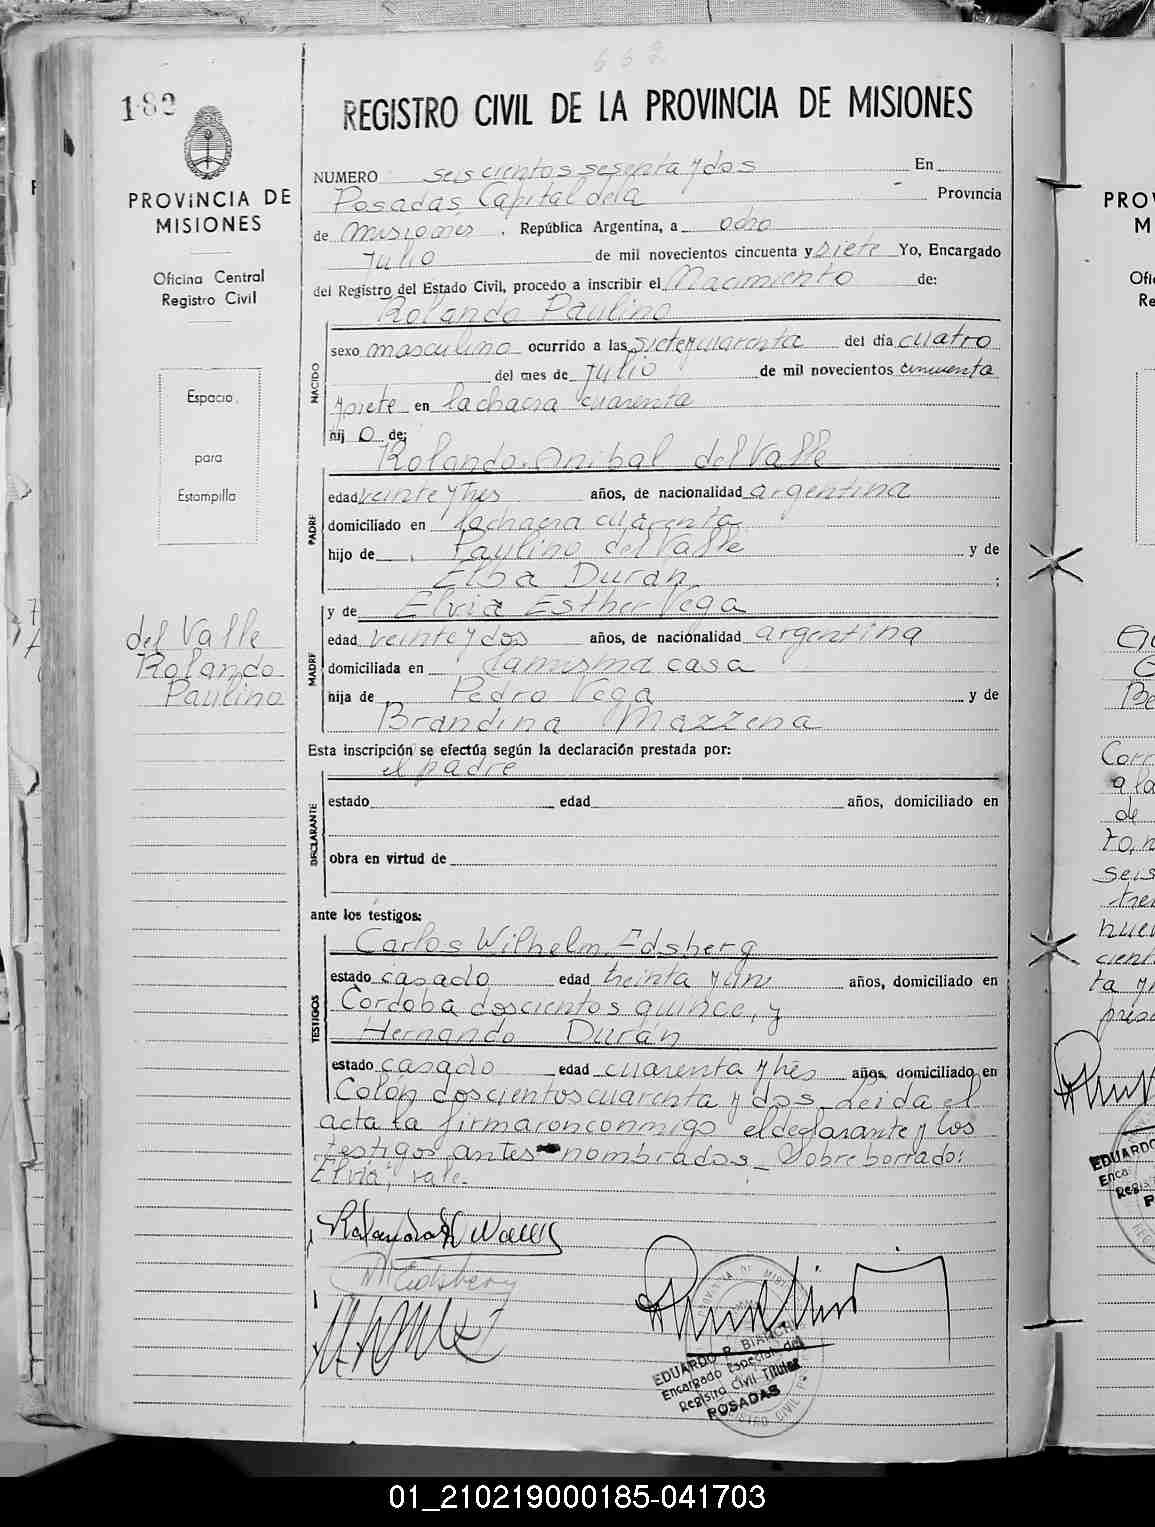 662
182
REGISTRO CIVIL DE LA PROVINCIA DE MISIONES
PROVINCIA DE
MISIONES
Oficina Central
Registro Civil
Espacio
para
Estampilla
del Valle
Rolando
Paulino
NUMERO seiscientos sesenta y dos En
Posadas, Capital de la Provincia
de Misiones, República Argentina, a ocho
Julio de mil novecientos cincuenta y siete Yo, Encargado
del Registro del Estado Civil, procedo a inscribir el Nacimiento de:
Rolando Paulino
NACIDO
sexo masculino ocurrido a las siete y cuarenta del día cuatro
del mes de Julio de mil novecientos cincuenta
y siete en la chacra cuarenta
hij o de:
Rolando Anibal del Valle
PADRE
edad veinte y tres años, de nacionalidad argentina
domiciliado en la chacra cuarenta
hijo de Paulino del Valle y de
Elba Durán ;
y de Elvia Esther Vega
MADRE
edad veinte y dos años, de nacionalidad argentina
domiciliada en la misma casa
hija de Pedro Vega y de
Brandina Mazzena
Esta inscripción se efectúa según la declaración prestada por:
el padre
DECLARANTE
estado edad años, domiciliado en
obra en virtud de
ante los testigos:
Carlos Wilhelm Edsberg
TESTIGOS
estado casado edad treinta y un años, domiciliado en
Córdoba doscientos quince, y
Hernando Durán
estado casado edad cuarenta y tres años, domiciliado en
Colón doscientos cuarenta y dos. Leida el
acta la firmaron conmigo el declarante y los
testigos antes nombrados. Sobre borrado:
Elvia; vale.
Edsberg
EDUARDO R. BIANCHI
Encargado Especial del
Registro Civil Titular
POSADAS
PROV
M
Ofi
Re
Corr
a la
de
to, n
seis
trei
nuev
cient
ta y
EDUARDO
Enca
Regis
01_210219000185-041703